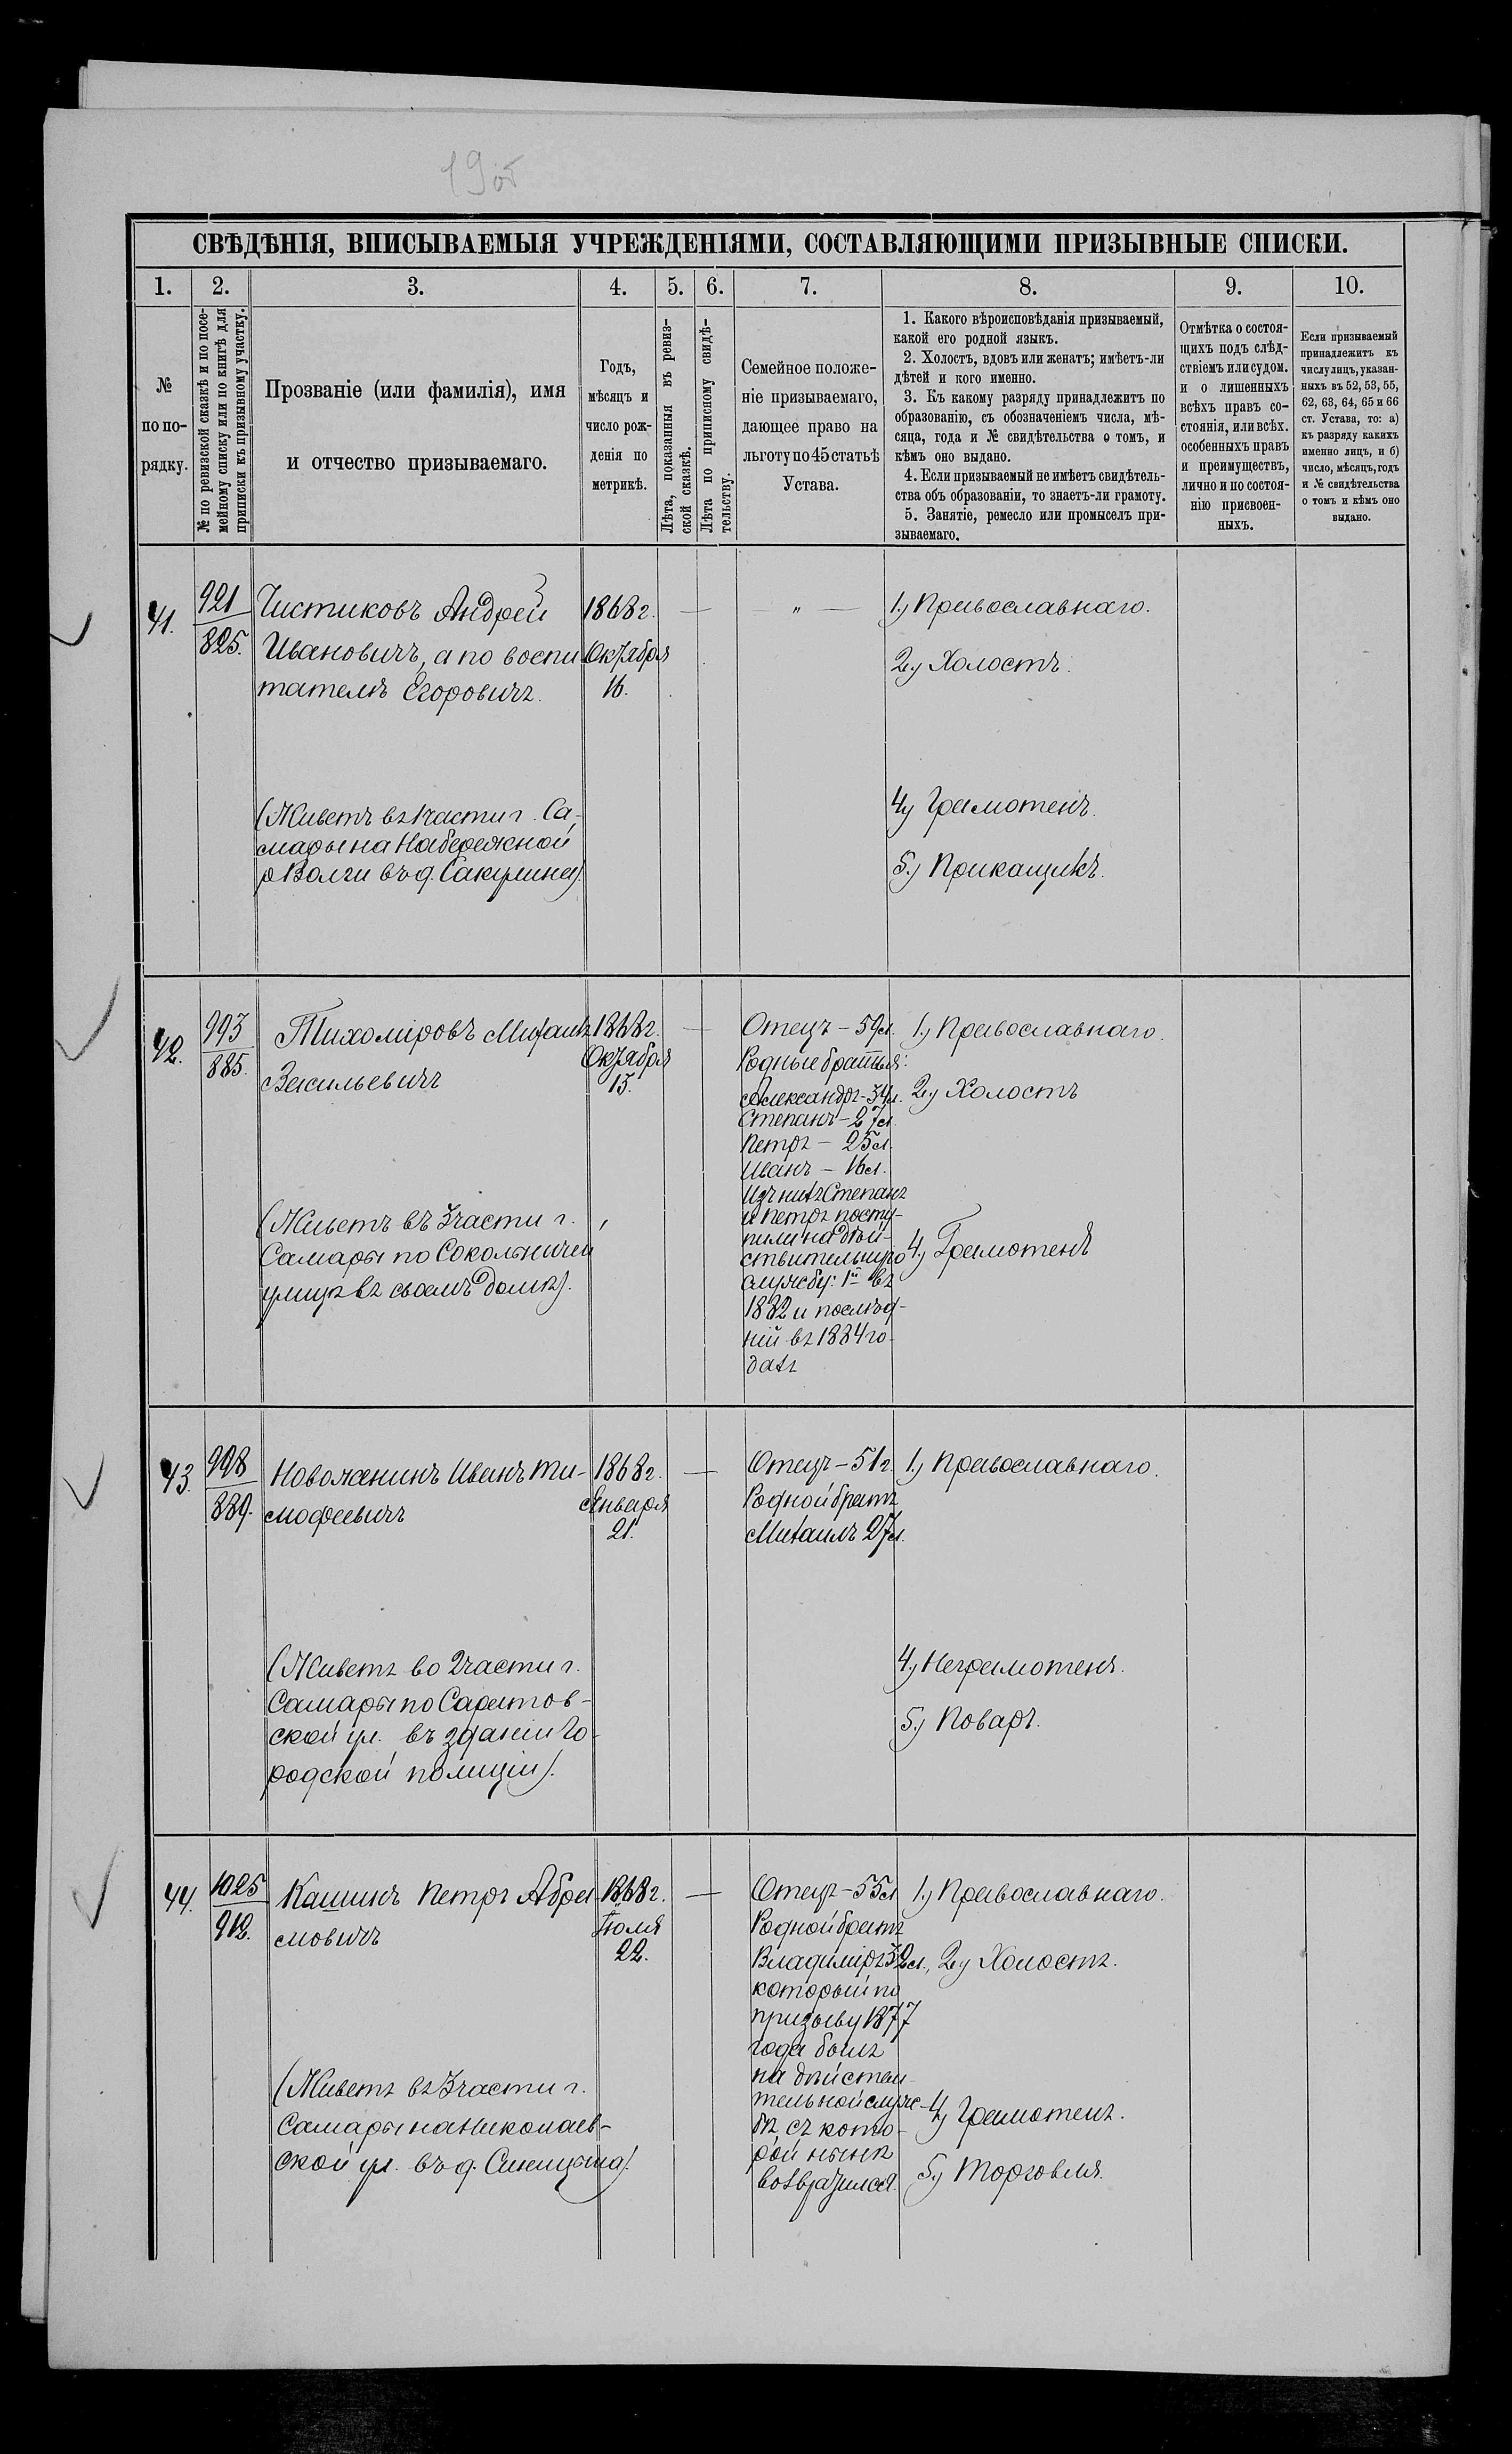 19об
СВѢДѢНІЯ, ВПИСЫВАЕМЫЯ УЧРЕЖДЕНІЯМИ, СОСТАВЛЯЮЩИМИ ПРИЗЫВНЫЕ СПИСКИ.
1. 2. 3. 4. 5. 6. 7. 8. 9. 10.
№
по по-
рядку.
№ по ревизской сказкѣ и по посе-
мейному списку или по книгѣ для
приписки къ призывному участку.
Прозваніе (или фамилія), имя
и отчество призываемаго.
Годъ,
мѣсяцъ и
число рож-
денія по
метрикѣ.
Лѣта, показанныя въ ревиз-
ской сказкѣ.
Лѣта по приписному свидѣ-
тельству.
Семейное положе-
ніе призываемаго,
дающее право на
льготу по 45 статьѣ
Устава.
1. Какого вѣроисповѣданія призываемый,
какой его родной языкъ.
2. Холостъ, вдовъ или женатъ; имѣетъ-ли
дѣтей и кого именно.
3. Къ какому разряду принадлежитъ по
образованію, съ обозначеніемъ числа, мѣ-
сяца, года и № свидѣтельства о томъ, и
кѣмъ оно выдано.
4. Если призываемый не имѣетъ свидѣтель-
ства объ образованіи, то знаетъ-ли грамоту.
5. Занятіе, ремесло или промыселъ при-
зываемаго.
Отмѣтка о состоя-
щихъ подъ слѣд-
ствіемъ или судом.
и о лишенныхъ
всѣхъ правъ со-
стоянія, или всѣх.
особенныхъ правъ
и преимуществъ,
лично и по состоя-
нію присвоен-
ныхъ.
Если призываемый
принадлежитъ къ
числу лицъ, указан-
ныхъ въ 52, 53, 55,
62, 63, 64, 65 и 66
ст. Устава, то: а)
къ разряду какихъ
именно лицъ, и б)
число, мѣсяцъ, годъ
и № свидѣтельства
о томъ и кѣмъ оно
выдано.
41.
921
825.
Чистиковъ Андрей
Ивановичъ, а по воспи
тателѣ Егоровичъ.
(Живетъ въ 1 части г. Са-
мары на Набережной
р Волги въ д. Сакулина).
1868 г.
Октября
16.
— „ —
1.) Православнаго.
2.) Холостъ.
4) Грамотенъ.
5.) Прикащикъ.
42.
993
885.
Тихоміровъ Михаилъ
Васильевичъ
(Живетъ въ 3 части г.
Самары по Сокольничей
улицѣ въ своемъ домѣ).
1868 г.
Октября
15.
Отецъ – 59 л.
Родные братья:
Александръ – 34 л.
Степанъ – 27 л
Петръ – 25 л.
Иванъ – 16 л.
Изъ нихъ Степанъ
и Петръ посту-
пили на дѣй-
ствительную
службу: 1й въ
1882 и послѣд-
ній въ 1884 го-
дахъ
1.) Православнаго.
2.) Холостъ
4.) Грамотенъ
43.
998
889.
Новожанинъ Иванъ Ти-
мофеевичъ
(Живетъ во 2 части г.
Самары по Саратов-
ской ул. въ зданіи Го-
родской полиціи).
1868 г.
Января
21.
Отецъ – 51 г.
Родной братъ
Михаилъ 27 л.
1.) Православнаго.
4.) Неграмотенъ.
5.) Поваръ.
44.
1025
912.
Кашинъ Петръ Абра
мовичъ
(Живетъ въ 3 части г.
Самары на Николаев-
ской ул. въ д. Синицына).
1868 г.
Іюля
22.
Отецъ – 55 л
Родной братъ
Владиміръ 32 л.,
который по
призыву 1877
года былъ
на дѣйстви
тельной служ-
бѣ, съ кото-
рой нынѣ
возвратился.
1.) Православнаго.
2.) Холостъ.
4) Грамотенъ.
5.) Торговля.